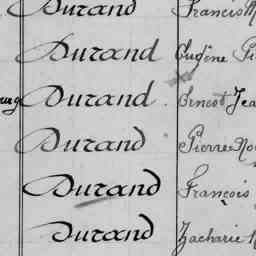 Durand Francis
Durand Eugène
Durand Ernest
Durand Pierre
Durand François
Durand Zacharie